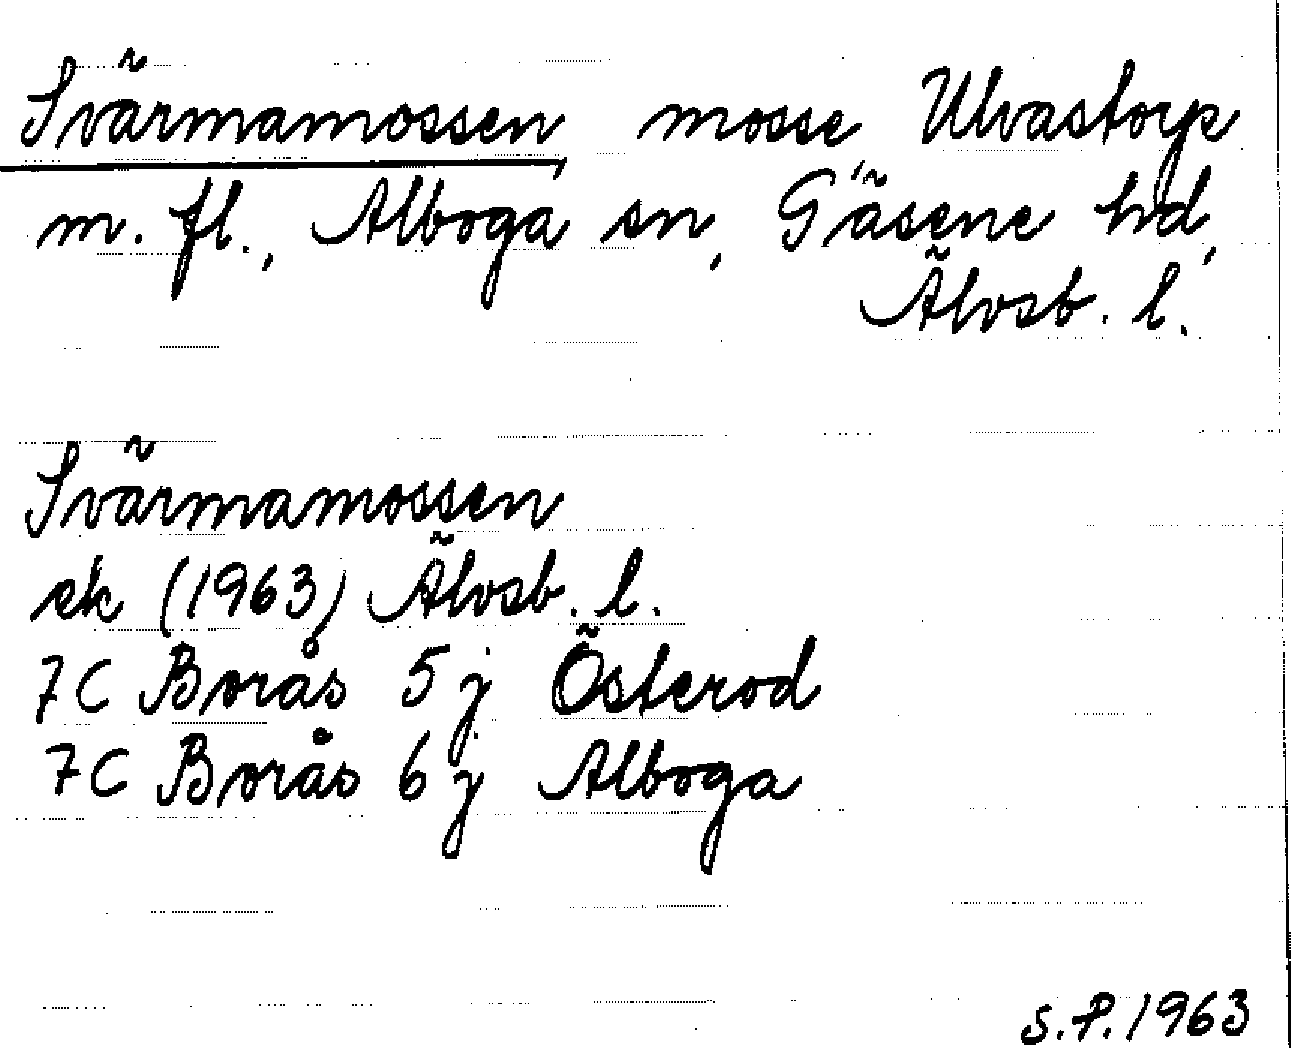 Svärmamossen, mosse Ulvastorp
m. fl., Alboga sn, Gäsene hd,
Älvsb. l.
Svärmamossen
ek (1963) Älvsb. l.
7C Borås 5j Österod
7C Borås 6j Alboga
S.P. 1963